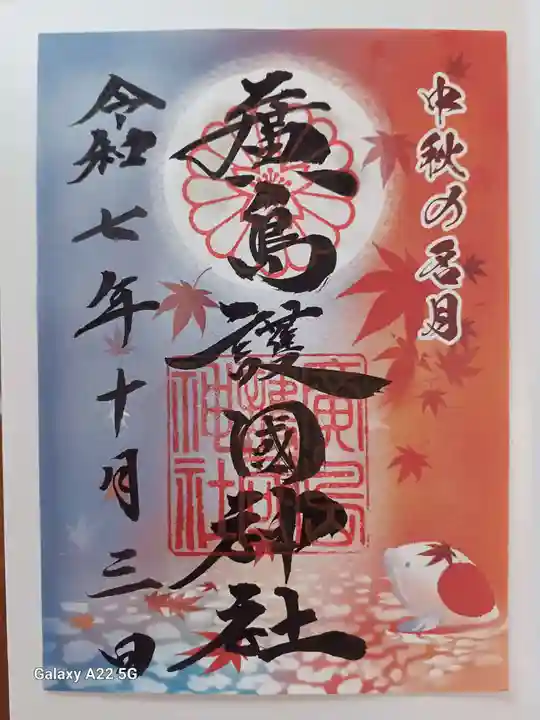 中秋の名月
廣島護國神社
廣島
護國
神社
令和七年十月三日
Galaxy A22 5G